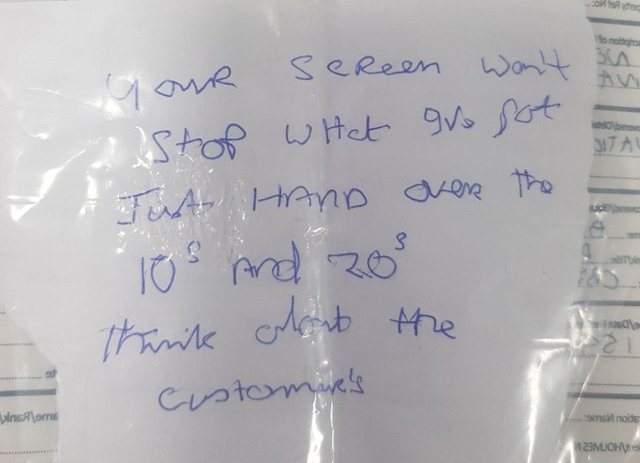 Your Screen won't
Stop what
Just HAND over the
10s and 20s
think about the
customer's